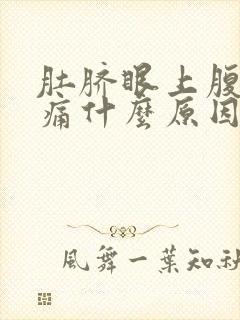 肚脐眼上腹
痛什麼原因
風舞一葉知秋